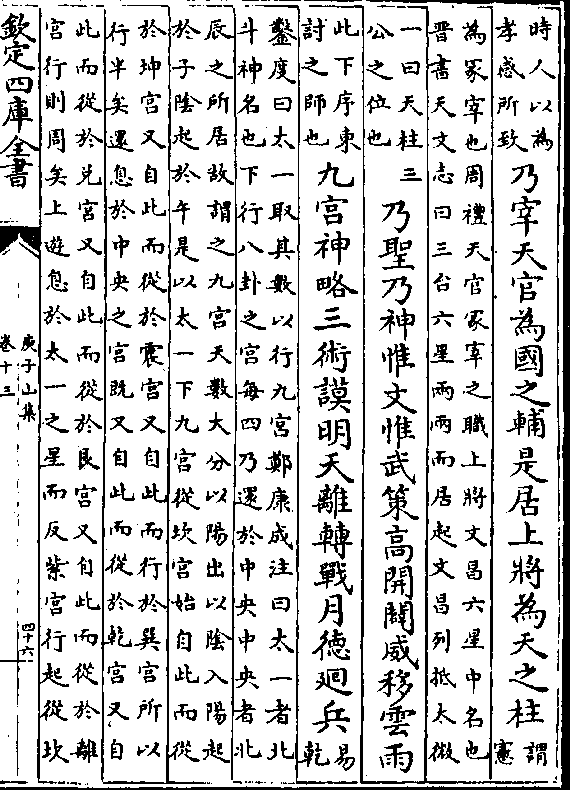 時人以為
孝感所致
乃宰天官為國之輔是居上將為天之柱
謂
憲
為冢宰也周禮天官冢宰之職上將文昌六星中名也
晉書天文志曰三台六星兩兩而居起文昌列抵太微
一曰天柱三
公之位也
乃聖乃神惟文惟武策高開闔威移雲雨
此下序東
討之師也
九宮神略三術謨明天離轉戰月德廻兵
易
乾
鑿度曰太一取其數以行九宮鄭康成注曰太一者北
斗神名也下行八卦之宮每四乃還於中央中央者北
辰之所居故謂之九宮天數大分以陽出以陰入陽起
於子陰起於午是以太一下九宮從坎宮始自此而從
於坤宮又自此而從於震宮又自此而行於巽宮所以
行半矣還息於中央之宮既又自此而從於乾宮又自
此而從於兌宮又自此而從於艮宮又自此而從於離
宮行則周矣上遊息於太一之星而反紫宮行起從坎
欽定四庫全書
庾子山集
卷十三
四十六